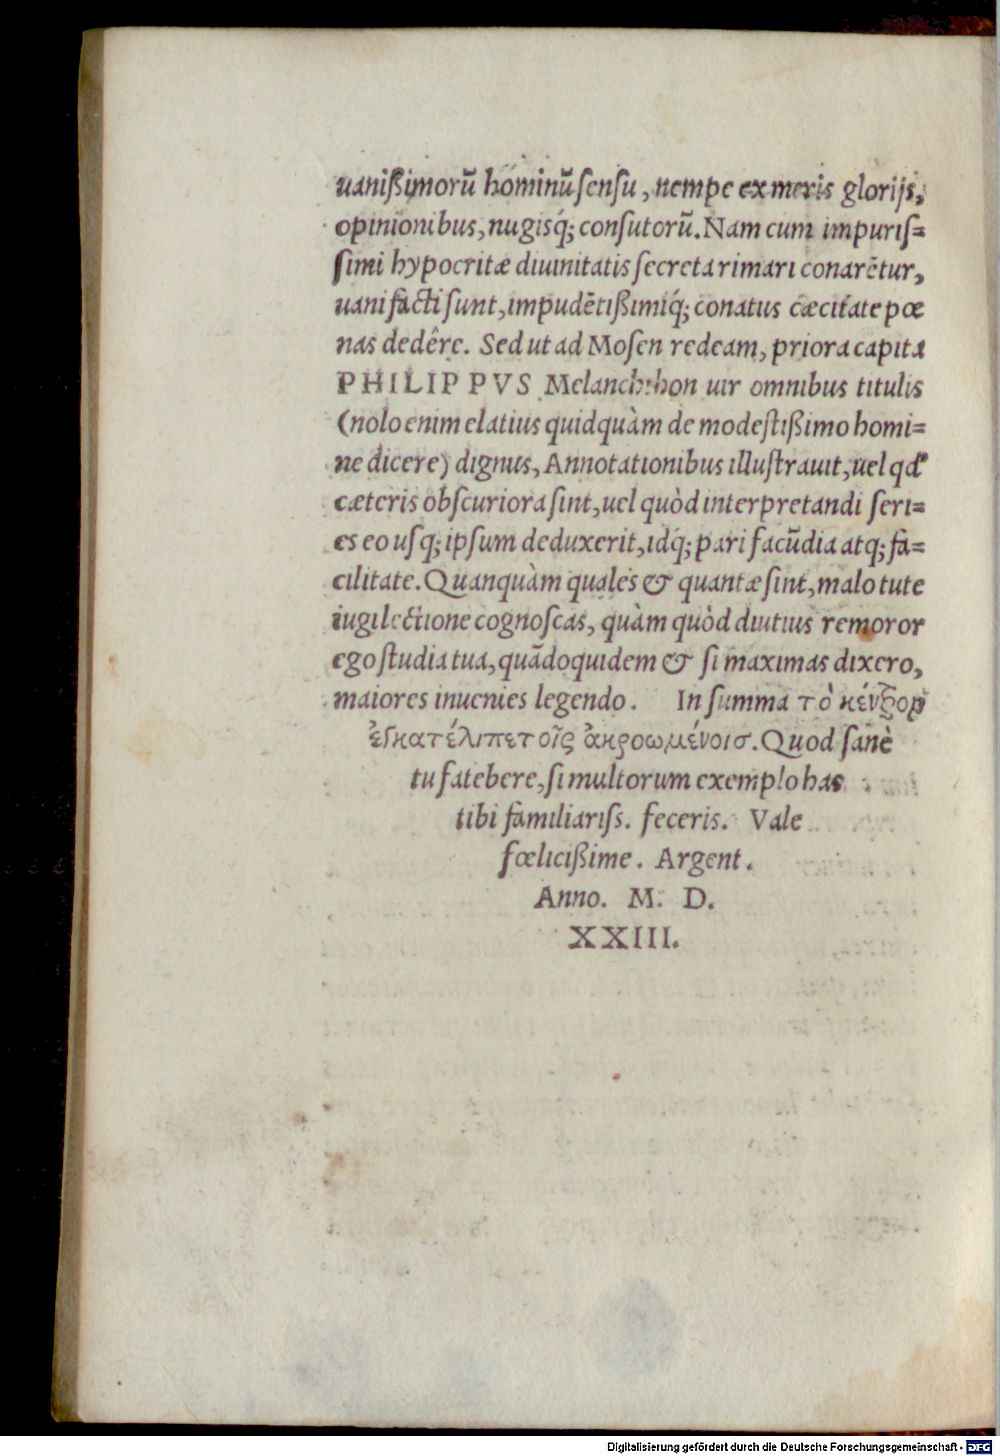 uanißimorũ hominũ sensu, nempe ex meris glorijs,
opinionibus, nugisq́; consutorũ. Nam cum impuriſ=
ſimi hypocritæ diuinitatis ſecreta rimari conarẽtur,
uani facti ſunt, impudẽtißimiq́; conatus cæcitate pœ
nas dedêre. Sed ut ad Moſen redeam, priora capita
PHILIPPVS Melanchthon uir omnibus titulis
(nolo enim elatius quidquàm de modeſtißimo homi=
ne dicere) dignus, Annotationibus illuſtrauit, uel qđ
cæteris obſcuriora ſint, uel quòd interpretandi ſeri=
es eo uſq; ipſum deduxerit, idq́; pari facũdia atq; fa=
cilitate. Quanquàm quales & quantæ ſint, malo tute
iugi lectione cognoſcas, quàm quòd diutius remoror
ego ſtudia tua, quãdoquidem & ſi maximas dixero,
maiores inuenies legendo. In ſumma τὸ κέντρον
ἐγκατέλιπε τοῖς ἀκροωμένοισ. Quod ſanè
tu fatebere, ſi multorum exemplo has
tibi familiariſs. feceris. Vale
fœlicißime. Argent.
Anno. M. D.
XXIII.
Digitalisierung gefördert durch die Deutsche Forschungsgemeinschaft - DFG